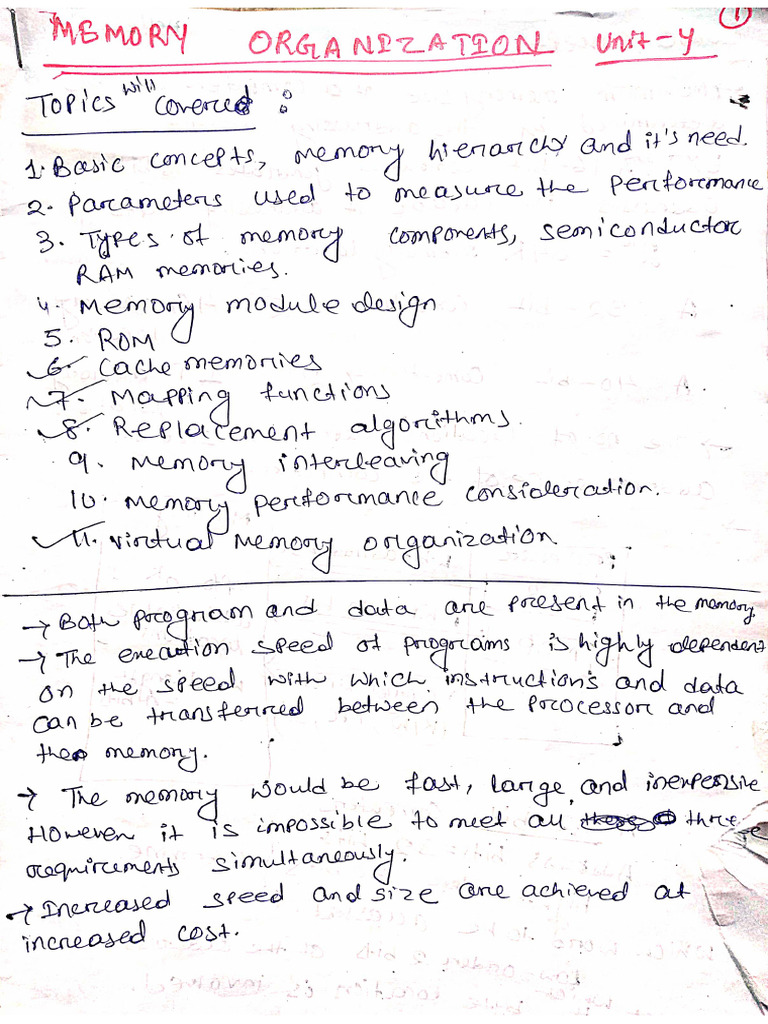 1
MEMORY ORGANIZATION Unit-4
Topics will covered :
1. Basic concepts, memory hierarchy and it's need.
2. Parameters used to measure the performance
3. Types of memory components, semiconductor
RAM memories.
4. Memory module design
5. ROM
6. Cache memories
7. Mapping functions
8. Replacement algorithms.
9. Memory interleaving
10. Memory performance consideration.
11. Virtual memory organization
→ Both program and data are present in the memory.
→ The execution speed of programs is highly dependent
on the speed with which instructions and data
can be transferred between the processor and
the memory.
→ The memory would be fast, large, and inexpensive
However it is impossible to meet all three
requirements simultaneously.
→ Increased speed and size are achieved at
increased cost.